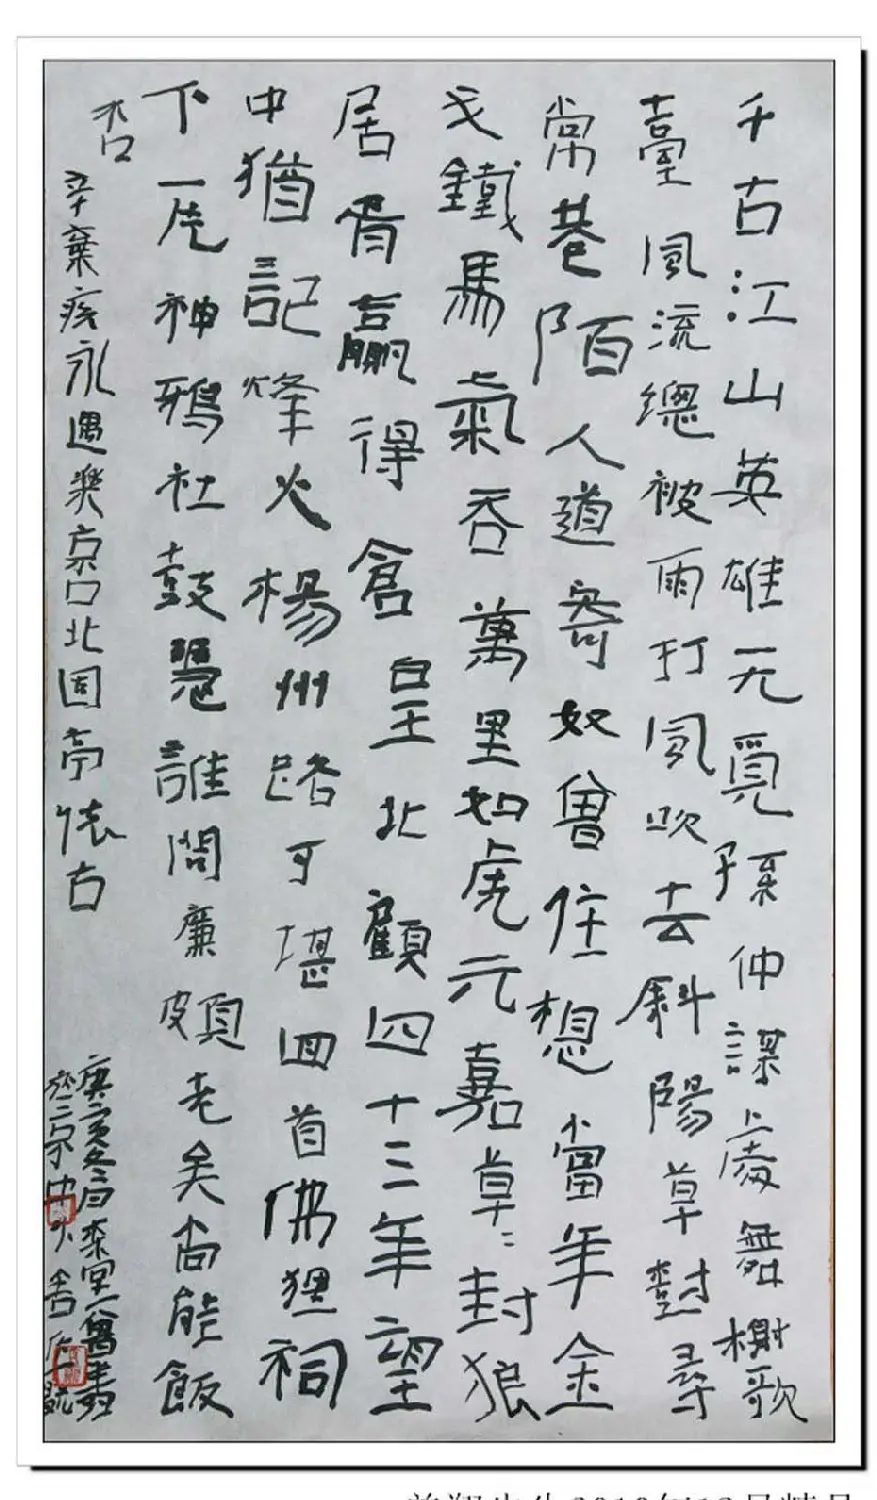 千古江山英雄无覓孫仲謀處舞榭歌
臺風流總被雨打風吹去斜陽草樹尋
常巷陌人道寄奴曾住想當年金
戈鐵馬氣吞萬里如虎元嘉草〻封狼
居胥贏得倉皇北顧四十三年望
中猶記烽火楊州路可堪回首佛狸祠
下一片神鴉社鼓憑誰問廉頗老矣尚能飯
否
辛棄疾永遇樂京口北固亭懷古
庚寅冬月